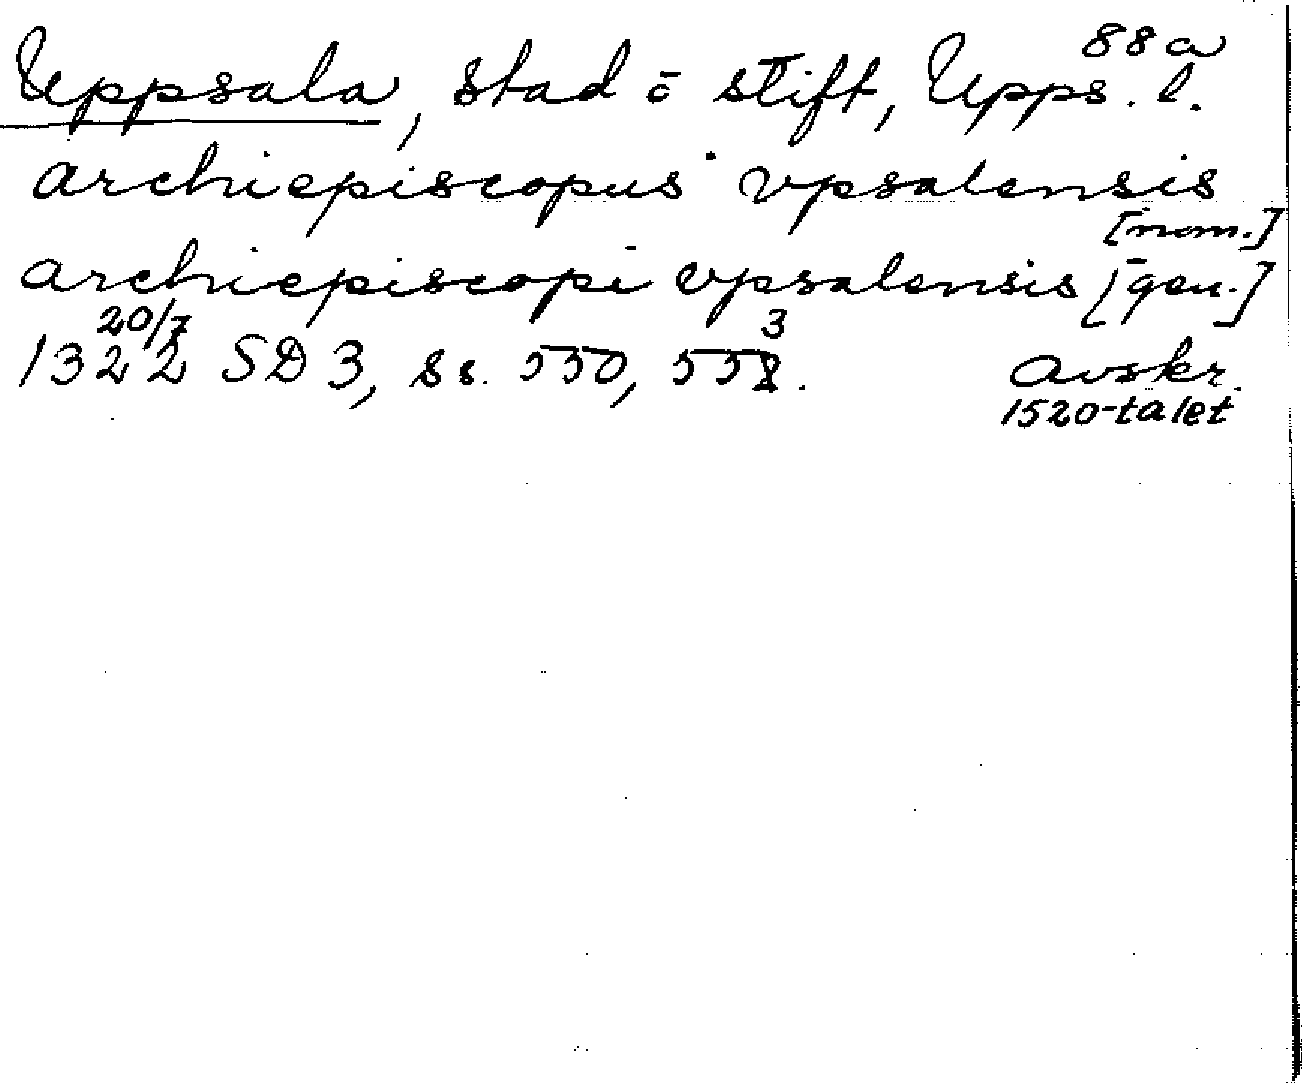 88a
Uppsala, stad o stift, Upps. l.
archiepiscopus vpsalensis
[nom.]
archiepiscopi vpsalensis [gen.]
20/7 3
1322 SD 3, ss. 550, 55. Avskr.
1520-talet